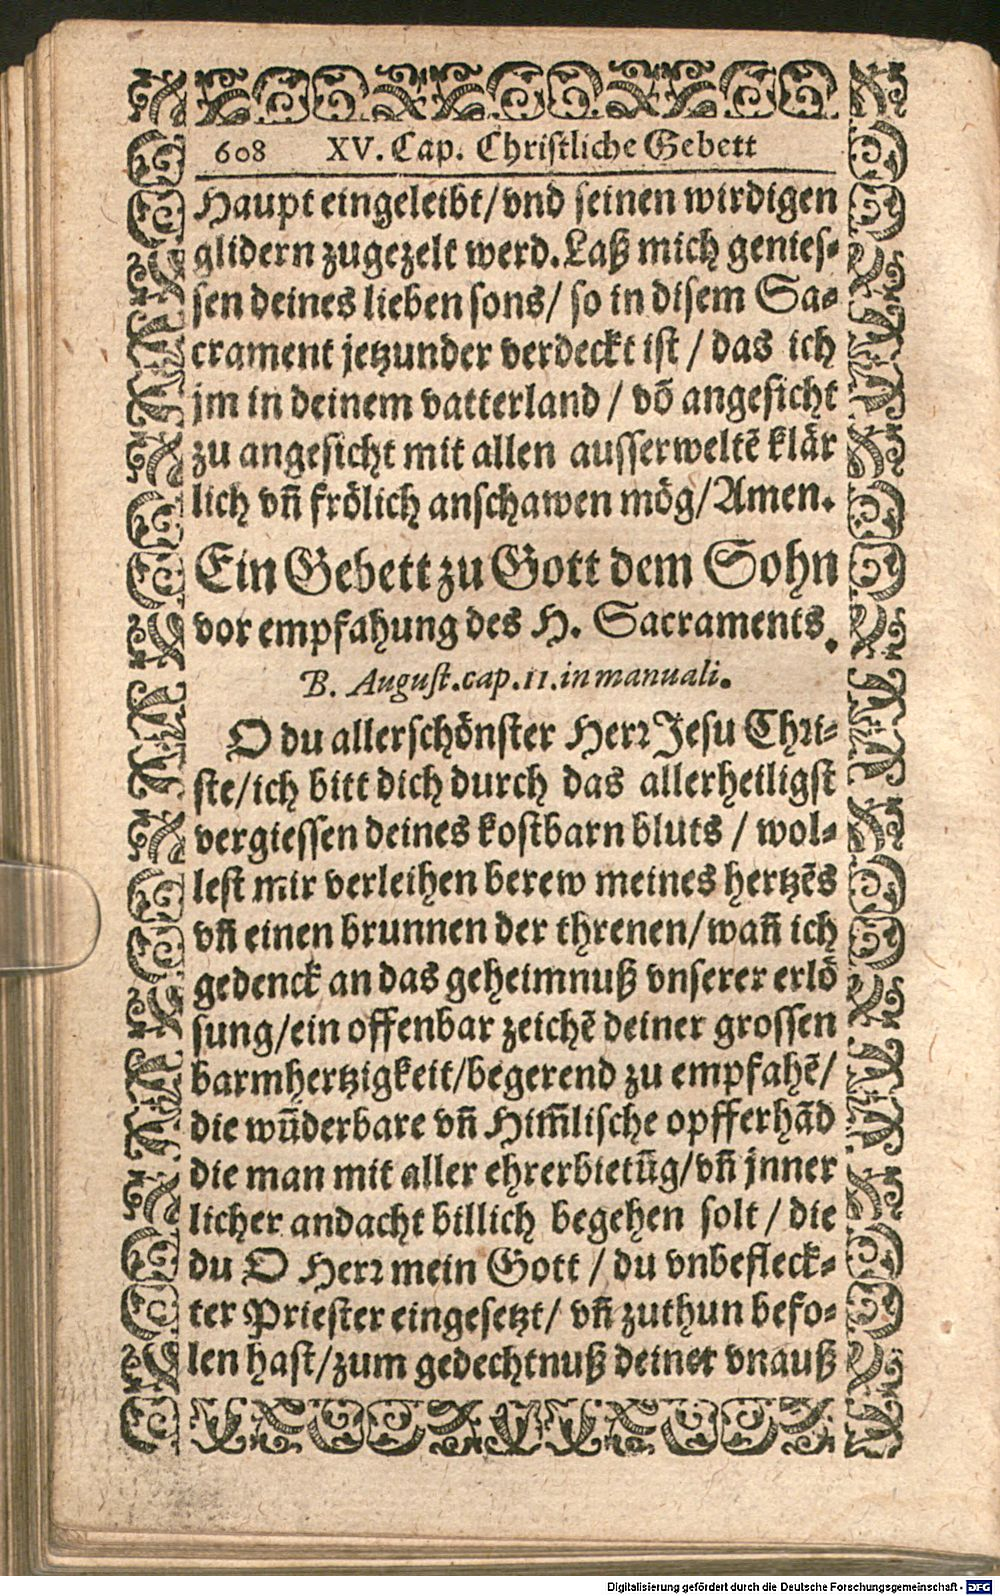 608 XV. Cap. Christliche Gebett
Haupt eingeleibt/vnd seinen wirdigen
glidern zugezelt werd. Laß mich genies-
sen deines lieben sons/ so in disem Sa-
crament jetzunder verdeckt ist / das ich
jm in deinem vatterland / võ angesicht
zu angesicht mit allen ausserweltẽ klår
lich vñ frőlich anschawen mőg/Amen.
Ein Gebett zu Gott dem Sohn
vor empfahung des H. Sacraments.
B. August. cap. 11. in manuali.
O du allerschőnster Herr Jesu Chri-
ste/ich bitt dich durch das allerheiligst
vergiessen deines kostbarn bluts / wol-
lest mir verleihen berew meines hertzẽs
vñ einen brunnen der threnen/wañ ich
gedenck an das geheimnuß vnserer erlő
sung/ein offenbar zeichẽ deiner grossen
barmhertzigkeit/begerend zu empfahẽ/
die wũderbare vñ Him̃lische opfferhãd
die man mit aller ehrerbietũg/vñ jnner
licher andacht billich begehen solt / die
du O Herr mein Gott / du vnbefleck-
ter Priester eingesetzt/ vñ zuthun befo-
len hast/zum gedechtnuß deiner vnauß
Digitalisierung gefördert durch die Deutsche Forschungsgemeinschaft - DFG